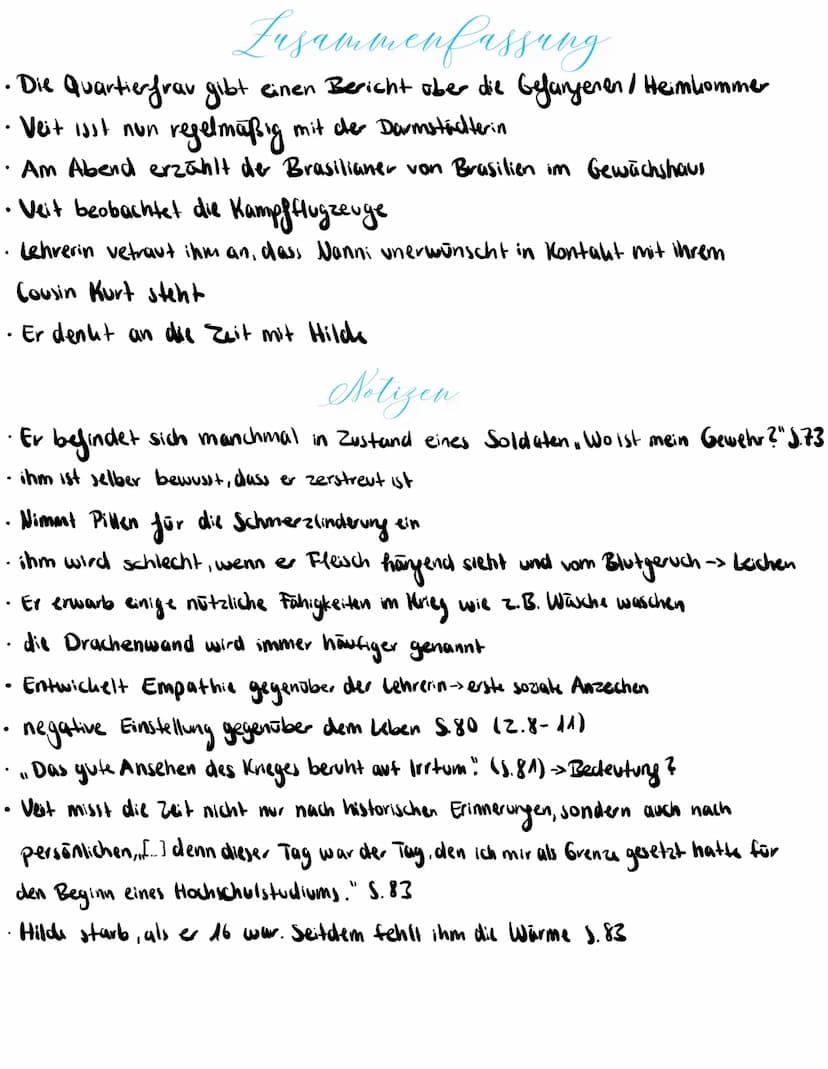 Zusammenfassung
· Die Quartierfrau gibt einen Bericht über die Gefangenen / Heimkommer
· Veit isst nun regelmäßig mit der Darmstädterin
· Am Abend erzählt der Brasilianer von Brasilien im Gewächshaus
· Veit beobachtet die Kampfflugzeuge
· Lehrerin vetraut ihm an, dass Nanni unerwünscht in Kontakt mit ihrem
Cousin Kurt steht
· Er denkt an die Zeit mit Hilde
Notizen
· Er befindet sich manchmal in Zustand eines Soldaten „Wo ist mein Gewehr?" S.73
· ihm ist selber bewusst, dass er zerstreut ist
· Nimmt Pillen für die Schmerzlinderung ein
· ihm wird schlecht, wenn er Fleisch hängend sieht und vom Blutgeruch -> Leichen
· Er erwarb einige nützliche Fähigkeiten im Krieg wie z.B. Wäsche waschen
· die Drachenwand wird immer häufiger genannt
· Entwickelt Empathie gegenüber der Lehrerin -> erste soziale Anzeichen
· negative Einstellung gegenüber dem Leben S.80 (Z.8-11)
· „Das gute Ansehen des Krieges beruht auf Irrtum." (S.81) -> Bedeutung?
· Veit misst die Zeit nicht nur nach historischen Erinnerungen, sondern auch nach
persönlichen, „[...] denn dieser Tag war der Tag, den ich mir als Grenze gesetzt hatte für
den Beginn eines Hochschulstudiums." S.83
· Hilde starb, als er 16 war. Seitdem fehlt ihm die Wärme S.83